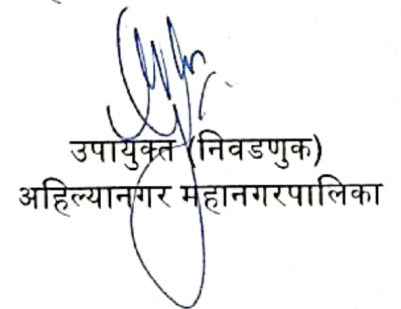 उपायुक्त (निवडणुक)
अहिल्यानगर महानगरपालिका